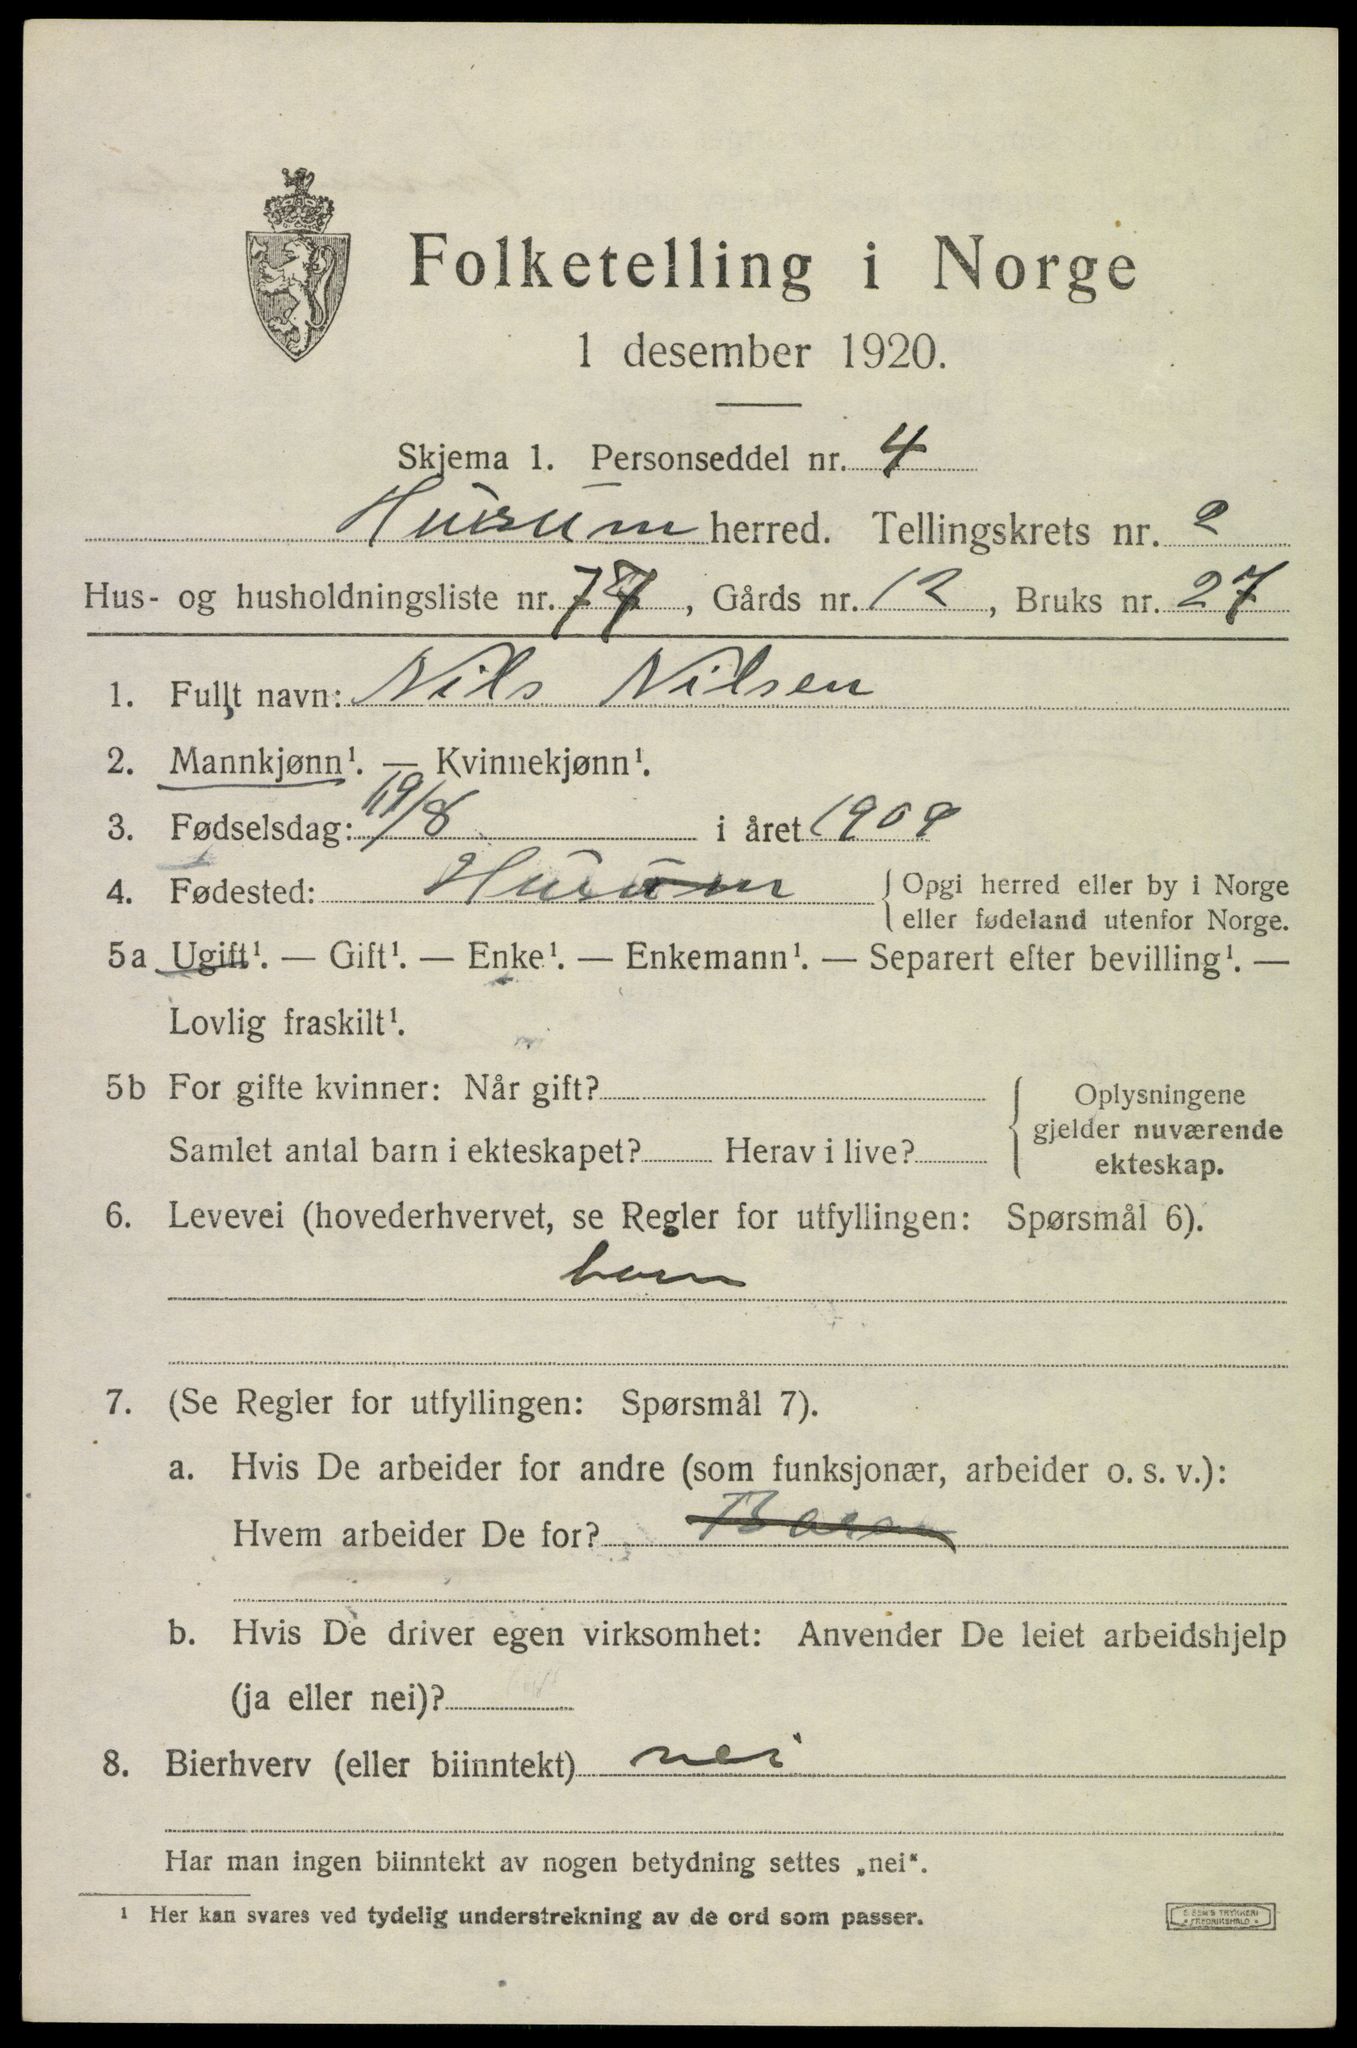 Folketelling i Norge
1 desember 1920.
Skjema 1. Personseddel nr. 4
Husum herred. Tellingskrets nr. 2
Hus- og husholdningsliste nr. 77, Gårds nr. 12, Bruks nr. 27
1. Fullt navn: Nils Nilsen
2. Mannkjønn¹. — Kvinnekjønn¹.
3. Fødselsdag: 19/8 i året 1909
4. Fødested: Husum { Opgi herred eller by i Norge
eller fødeland utenfor Norge.
5a Ugift¹. — Gift¹. — Enke¹. — Enkemann¹. — Separert efter bevilling¹. —
Lovlig fraskilt¹.
5b For gifte kvinner: Når gift?
Samlet antal barn i ekteskapet? Herav i live?
Oplysningene
gjelder nuværende
ekteskap.
6. Levevei (hovederhvervet, se Regler for utfyllingen: Spørsmål 6).
barn
7. (Se Regler for utfyllingen: Spørsmål 7).
a. Hvis De arbeider for andre (som funksjonær, arbeider o. s. v.):
Hvem arbeider De for? Barn
b. Hvis De driver egen virksomhet: Anvender De leiet arbeidshjelp
(ja eller nei)?
8. Bierhverv (eller biinntekt) nei
Har man ingen biinntekt av nogen betydning settes „nei“.
¹ Her kan svares ved tydelig understrekning av de ord som passer.
TRYKKERI
FREDRIKSHALD